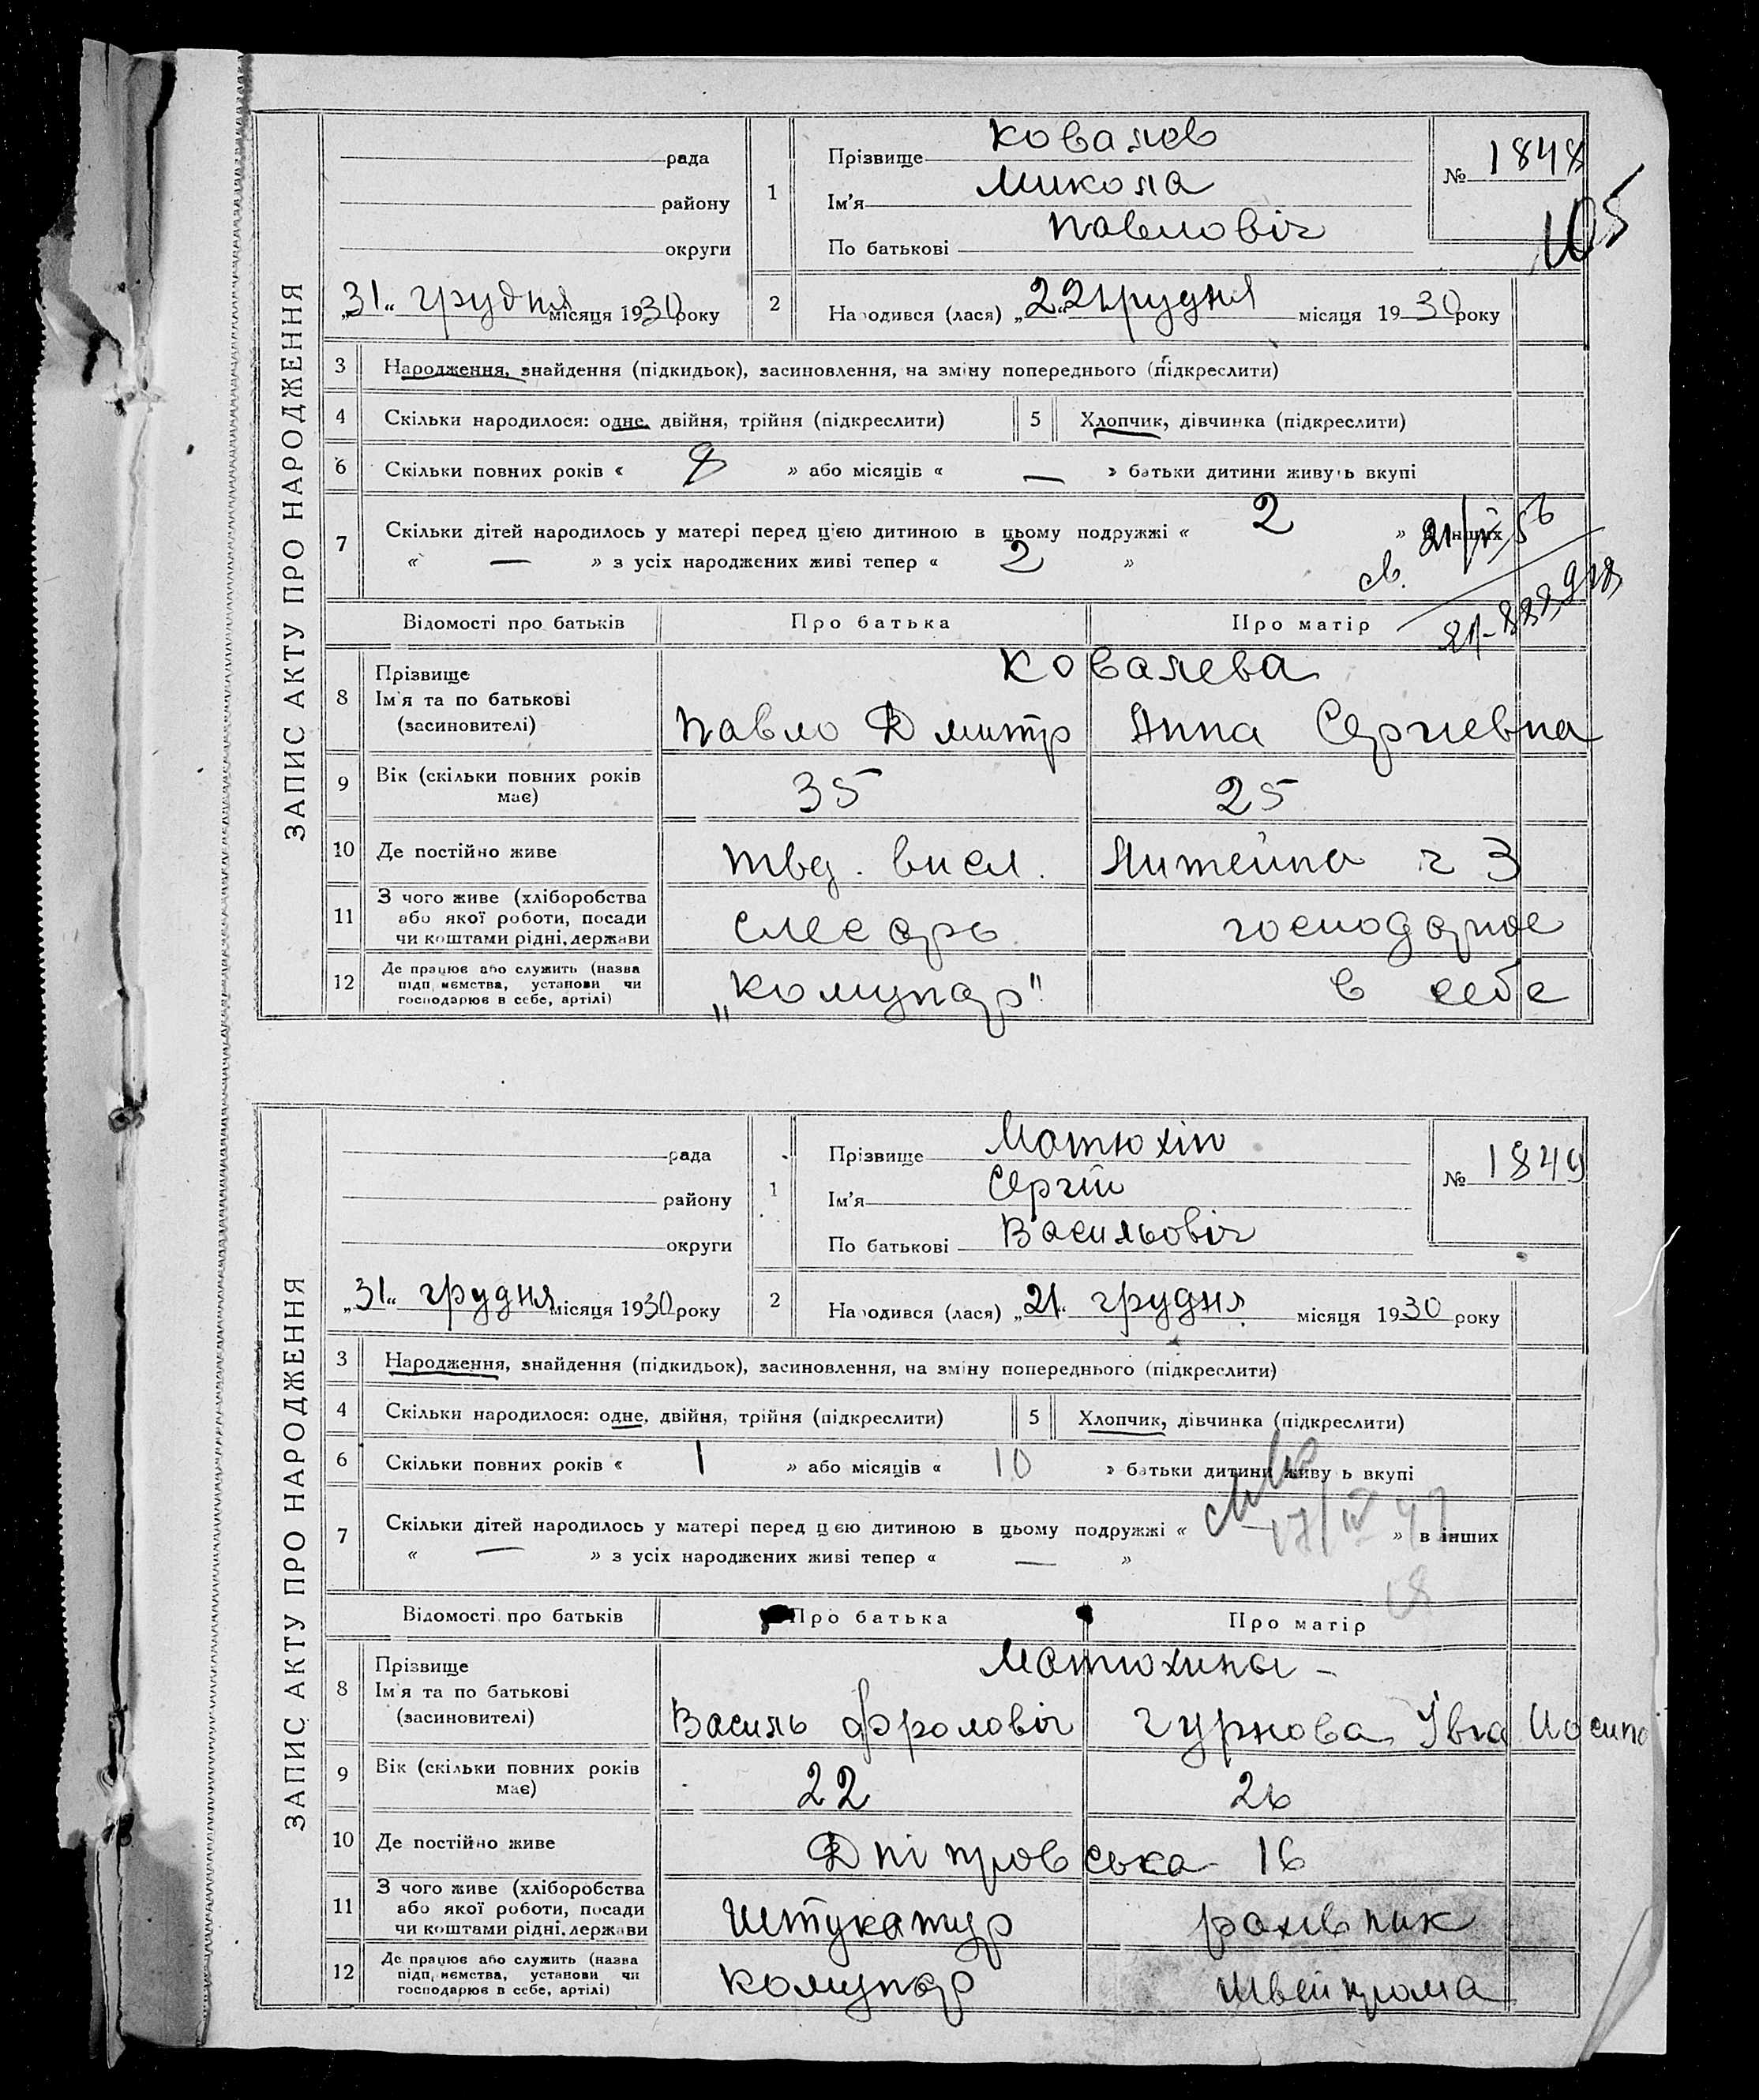 ЗАПИС АКТУ ПРО НАРОДЖЕННЯ
рада
району
округи
„31“ грудня місяця 1930 року
1
Прізвище Ковалев
Ім'я Микола
По батькові Павловіч
№ 1848
105
2
Народився (лася) „22“ грудня місяця 1930 року
3 Народження, знайдення (підкидьок), засиновлення, на зміну попереднього (підкреслити)
4 Скільки народилося: одне, двійня, трійня (підкреслити)
5 Хлопчик, дівчинка (підкреслити)
6 Скільки повних років « 8 » або місяців « — » батьки дитини живуть вкупі
7 Скільки дітей народилось у матері перед цією дитиною в цьому подружжі « 2 » в інших
« — » з усіх народжених живі тепер « 2 »
св.
Відомості про батьків
Про батька
Про матір
8 Прізвище
Ім'я та по батькові
(засиновителі)
Ковалева
Павло Дмитр
Анна Сергиевна
9 Вік (скільки повних років
має)
35
25
10 Де постійно живе
твд. висел.
Литейна ч 3
11 З чого живе (хліборобства
або якої роботи, посади
чи коштами рідні, держави
слесарь
господарює
12 Де працює або служить (назва
підприємства, установи чи
господарює в себе, артілі)
„Комунар"
в себе
ЗАПИС АКТУ ПРО НАРОДЖЕННЯ
рада
району
округи
„31“ грудня місяця 1930 року
1
Прізвище Матюхін
Ім'я Сергій
По батькові Васильовіч
№ 1849
2
Народився (лася) „21“ грудня місяця 1930 року
3 Народження, знайдення (підкидьок), засиновлення, на зміну попереднього (підкреслити)
4 Скільки народилося: одне, двійня, трійня (підкреслити)
5 Хлопчик, дівчинка (підкреслити)
6 Скільки повних років « 1 » або місяців « 10 » батьки дитини живуть вкупі
7 Скільки дітей народилось у матері перед цією дитиною в цьому подружжі « » в інших
« — » з усіх народжених живі тепер « — »
Відомості про батьків
Про батька
Про матір
8 Прізвище
Ім'я та по батькові
(засиновителі)
Матюхины –
Василь Фроловіч
Чурнова Івга Иосипо
9 Вік (скільки повних років
має)
22
26
10 Де постійно живе
Дніпровська 16
11 З чого живе (хліборобства
або якої роботи, посади
чи коштами рідні, держави
Штукатур
рахівник
12 Де працює або служить (назва
підприємства, установи чи
господарює в себе, артілі)
Комунар
Швейпрома